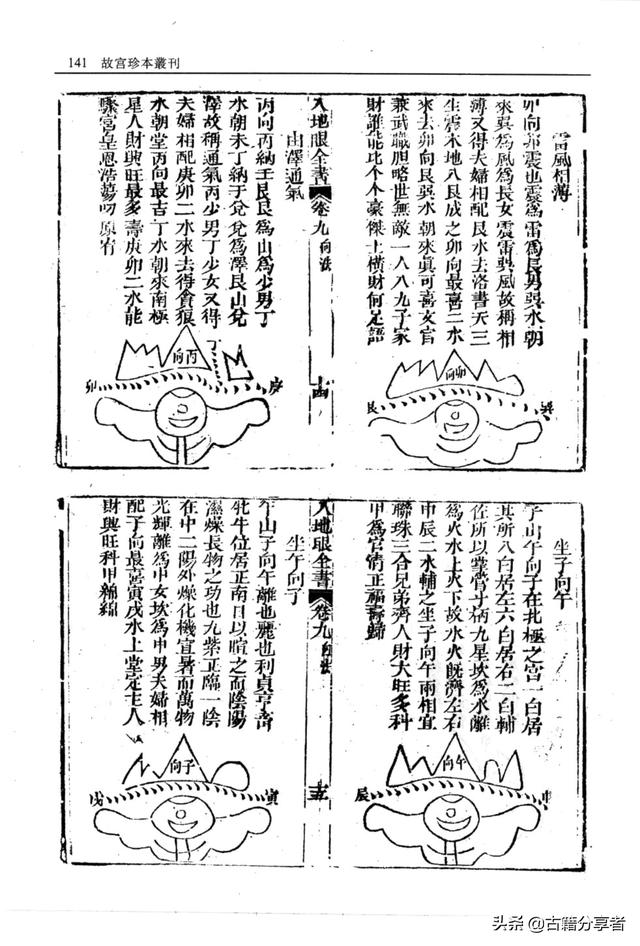 141 故宮珍本叢刊
雷風相薄
卯向卯震也震爲雷爲長男巽水朝
來巽爲風爲長女震雷巽風故稱相
薄又得夫婦相配艮水去洛書天三
生震木地八艮成之卯向最喜二水
來去卯向艮巽水朝來眞可喜文官
兼武職胆略世無敵一八八九子家
財誰能比个个豪傑士橫財何足語
巽
卯向
艮
入地眼全書 卷九 向法 十四
山澤通氣
丙向丙納于艮艮爲山爲少男丁
水朝未丁納于兌兌爲澤艮山兌
澤故稱通氣丙少男丁少女又得
夫婦相配庚卯二水來去得貪狼
水朝堂丙向最吉丁水朝來南極
星人財興旺最多壽庚卯二水能
驟富皇恩浩蕩叨原宥
丁
庚
丙向
卯
坐子向午
子山午向子在北極之宮一白居
其所八白居左六白居右二白輔
佐所以掌管斗柄九星坎爲水離
爲火水上火下故水火旣濟左右
申辰二水輔之坐子向午兩相宜
聯珠三合兄弟齊人財大旺多科
甲爲官淸正福壽歸
申
午向
辰
入地眼全書 卷九 向法 十五
坐午向子
午山子向午離也麗也利貞亨畜
牝牛位居正南日以暄之而陰陽
濕燥長物之功也九紫正臨一陰
在中二陽外燥化機宜暑而萬物
光輝離爲中女坎爲中男夫婦相
配子向最喜寅戌水上堂定主人
財興旺科甲綿綿
寅
子向
戌
头条@古籍分享者